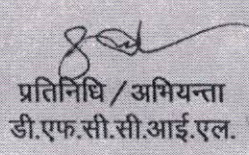 प्रतिनिधि / अभियन्ता
डी.एफ.सी.सी.आई.एल.